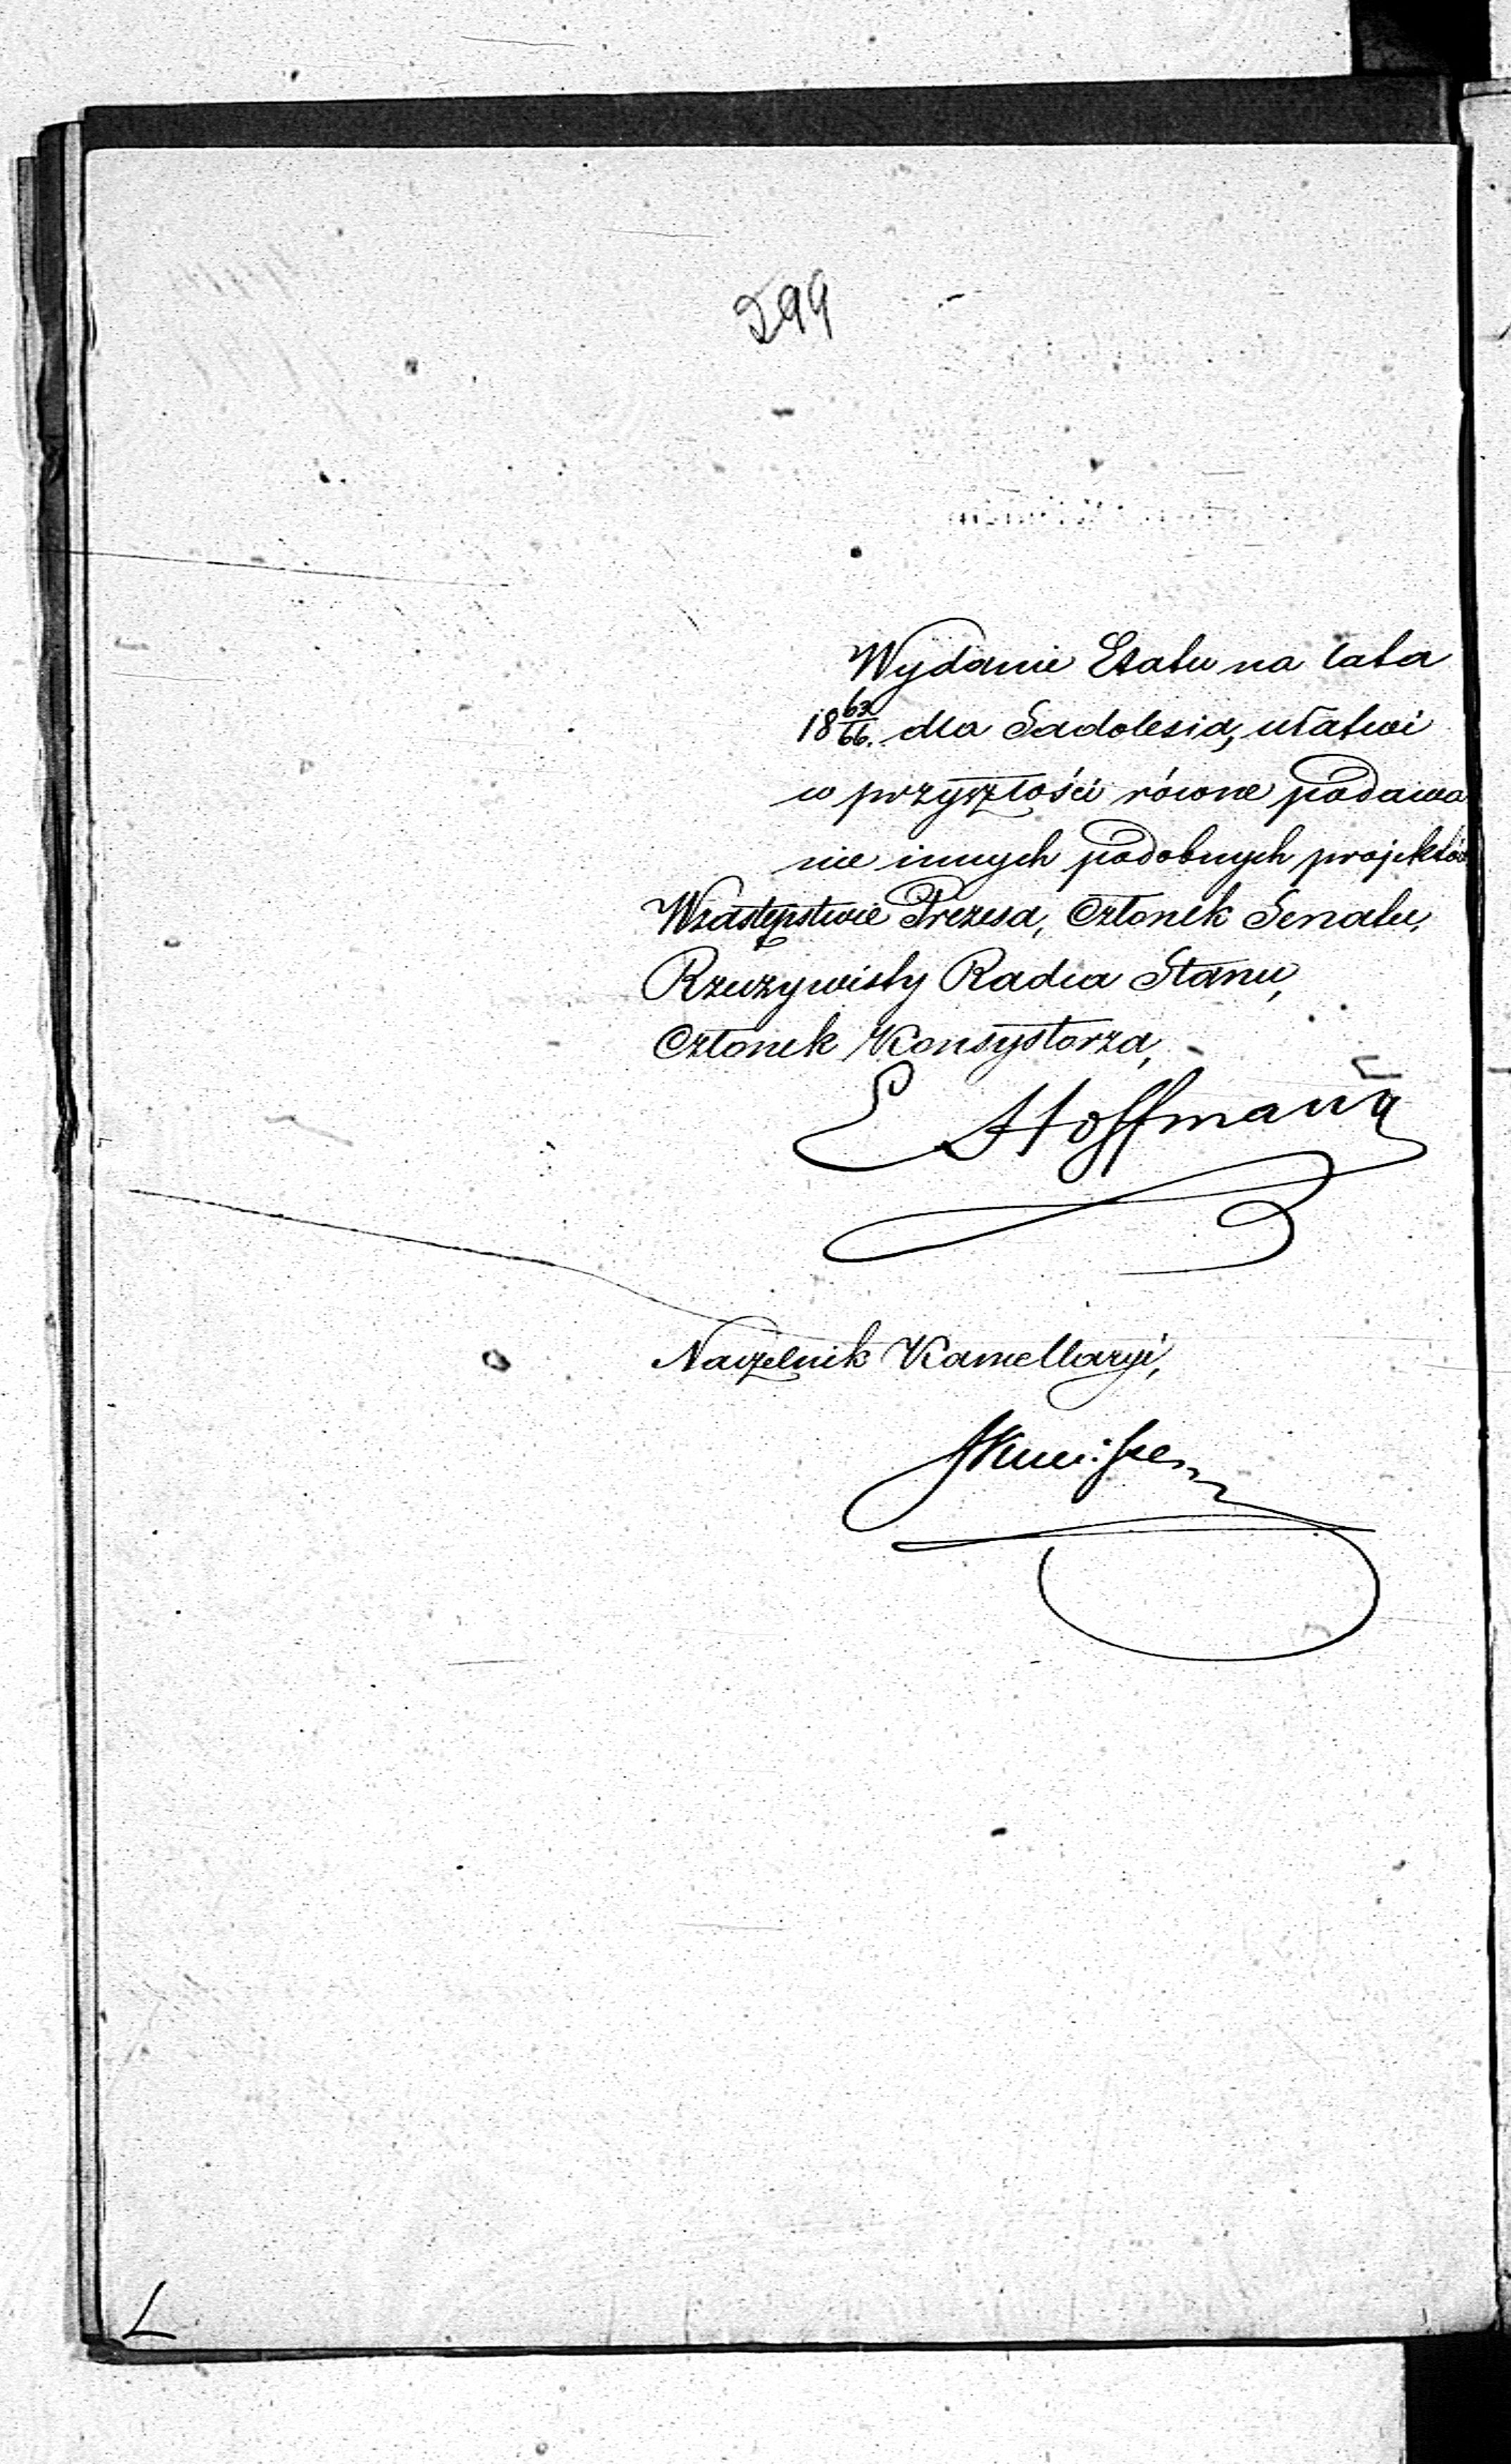 299
Wydanie Etatu na lata
18 63/66. dla Sadolesia, ułatwi
w przyszłości równe podawa
nie innych podobnych projektów
W zastępstwie Prezesa, Członek Senatu,
Rzeczywisty Radca Stanu,
Członek Konsystorza,
E Hoffmann
Naczelnik Kancellaryi,
L